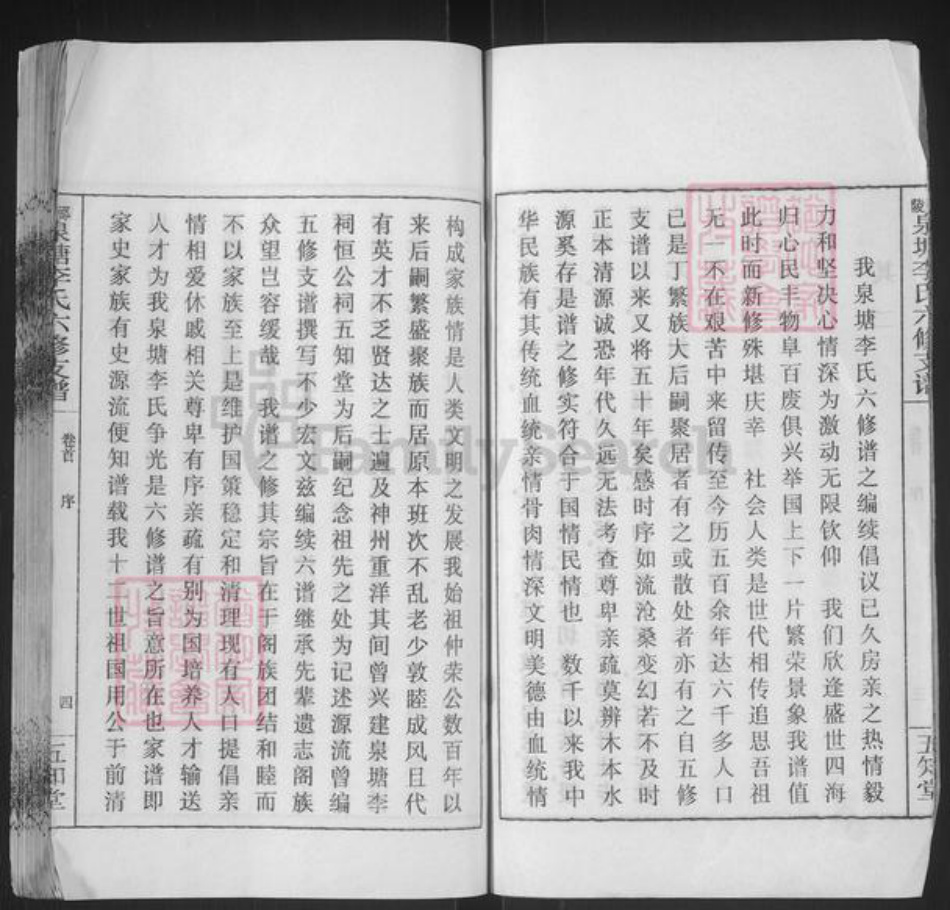 陵
泉塘李氏六修支谱
五知堂
我泉塘李氏六修谱之编续倡议已久房亲之热情毅
力和坚决心情深为激动无限钦仰　我们欣逢盛世四海
归心民丰物阜百废俱兴举国上下一片繁荣景象我谱值
此时而新修殊堪庆幸　社会人类是世代相传追思吾祖
无一不在艰苦中来留传至今历五百余年达六千多人口
已是丁繁族大后嗣聚居者有之或散处者亦有之自五修
支谱以来又将五十年矣感时序如流沧桑变幻若不及时
正本清源诚恐年代久远无法考查尊卑亲疏莫辨木本水
源奚存是谱之修实符合于国情民情也　数千以来我中
华民族有其传统血统亲情骨肉情深文明美德由血统情
构成家族情是人类文明之发展我始祖仲荣公数百年以
来后嗣繁盛聚族而居原本班次不乱老少敦睦成风且代
有英才不乏贤达之士遍及神州重洋其间曾兴建泉塘李
祠恒公祠五知堂为后嗣纪念祖先之处为记述源流曾编
五修支谱撰写不少宏文兹编续六谱继承先辈遗志阖族
众望岂容缓哉　我谱之修其宗旨在于阖族团结和睦而
不以家族至上是维护国策稳定和清理现有人口提倡亲
情相爱休戚相关尊卑有序亲疏有别为国培养人才输送
人才为我泉塘李氏争光是六修谱之旨意所在也家谱即
家史家族有史源流便知谱载我十二世祖国用公于前清
泉塘李氏六修支谱
卷首　序
四
五知堂
FamilySearch